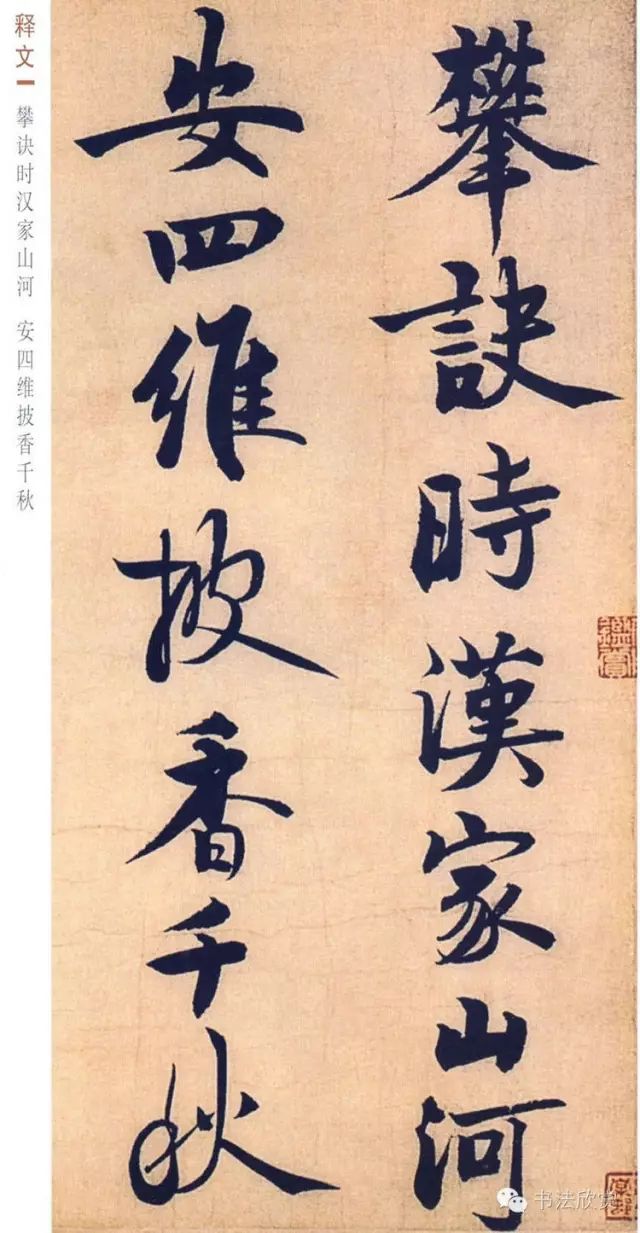 释文
攀诀时汉家山河 安四维披香千秋
攀訣時漢家山河
安四維披香千秋
书法欣赏